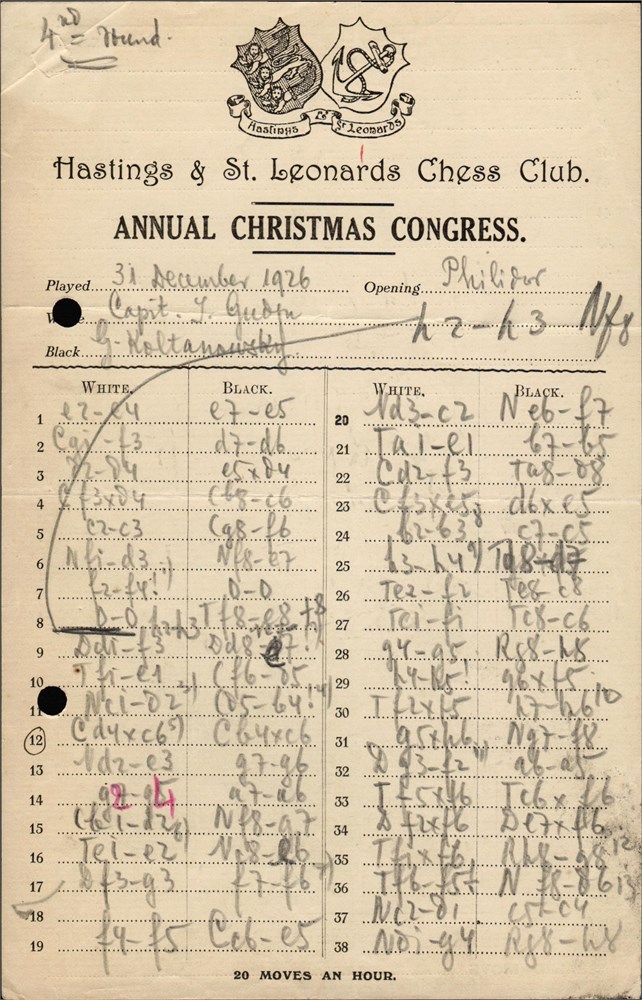 4
Hastings & St Leonards
Hastings & St. Leonards Chess Club.
ANNUAL CHRISTMAS CONGRESS.
Played 31 December 1926 Opening Philidor
Capit. h2-h3 Nf8
Black G. Koltanowsky
WHITE. BLACK. WHITE. BLACK.
1 e2-e4 e7-e5 20 Nd3-c2 Ne6-f7
2 f3 d7-d6 21 Ta1-e1 b7-b5
3 d2-d4 e5xd4 22 Cd2-f3 Ta8-d8
4 Cf3xd4 Cb8-c6 23 Cf3xe5 d6xe5
5 c2-c3 Cg8-f6 24 b2-b3 c7-c5
6 Nf1-d3 Nf8-e7 25 h3-h4
7 f2-f4! 0-0 26 Te2-f2 Te8-c8
8 0-0 h2-h3 Tf8-e8 27 Te1-f1 Tc8-c6
9 Dd1-f3 28 g4-g5 Rg8-h8
10 Tf1-e1 Cf6-d5 29 h4-h5! g6xf5
11 Nc1-d2 Cd5-b4! 30 Tf2xf5 h7-h6
12 Cd4xc6 Cb4xc6 31 g5xh6 Ng7-f8
13 Nd2-e3 g7-g6 32 Dg3-f2 a6-a5
14 g2- 4 a7-a6 33 Tf5xf6 Tc6xf6
15 Cb1-d2 Nf8-g7 34 Df2xf6 De7xf6
16 Te1-e2 35 Tf1xf6 Rh8-g8
17 Df3-g3 f7-f6 36 Tf6-f5 Nf8-d6
18 37 Nc2-d1 c5-c4
19 f4-f5 Cc6-e5 38 Nd1-g4 Rg8-h8
20 MOVES AN HOUR.